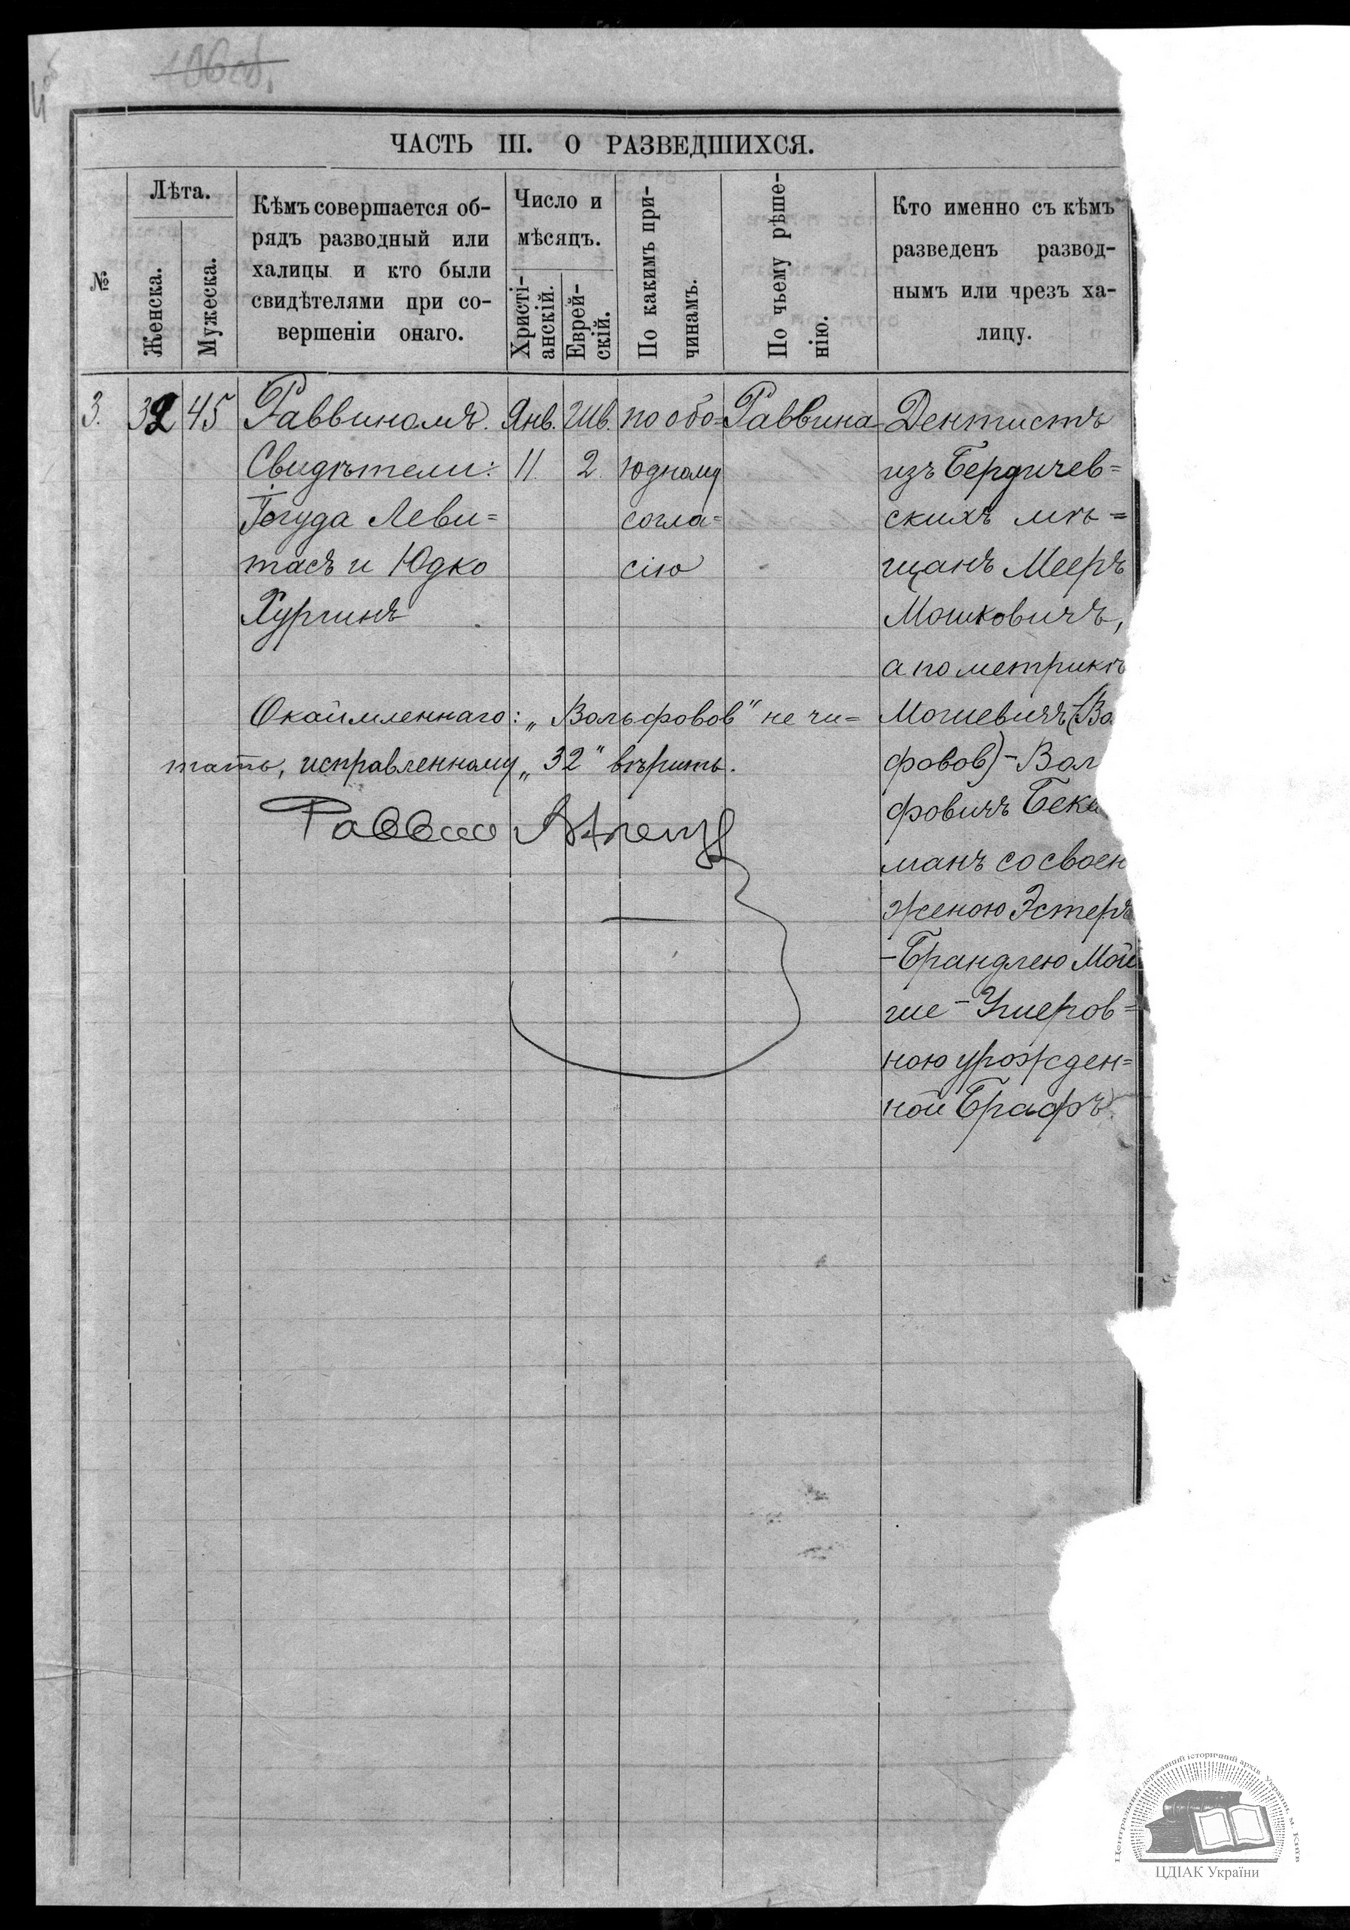 106 об.
ЧАСТЬ III. О РАЗВЕДШИХСЯ.
№
Лѣта.
Женска.
Мужеска.
Кѣмъ совершается об-
рядъ разводный или
халицы и кто были
свидѣтелями при со-
вершеніи онаго.
Число и
мѣсяцъ.
Христі-
анскій.
Еврей-
скій.
По какимъ при-
чинамъ.
По чьему рѣше-
нію.
Кто именно съ кѣмъ
разведенъ развод-
нымъ или чрезъ ха-
лицу.
3.
32
45
Раввиномъ.
Свидѣтели:
Іегуда Леви=
тасъ и Юдко
Хургинъ
Янв.
11.
Шв.
2.
по обо-
юдному
согла=
сію
Раввина
Дентистъ
изъ Бердичев=
скихъ мѣ=
щанъ Мееръ
Мошковичъ,
а по метрикѣ
Мошевичъ (Во
фовов) - Вол
фовичъ Бек
манъ со своею
женою Эстеръ
-Брандлею Мой
ше-Ушеров=
ною урожден=
ной Графъ.
Окаймленнаго: „Вольфовов" не чи=
тать, исправленному „32" вѣрить.
Раввин
Центральний державний історичний архів України, м. Київ
ЦДІАК України